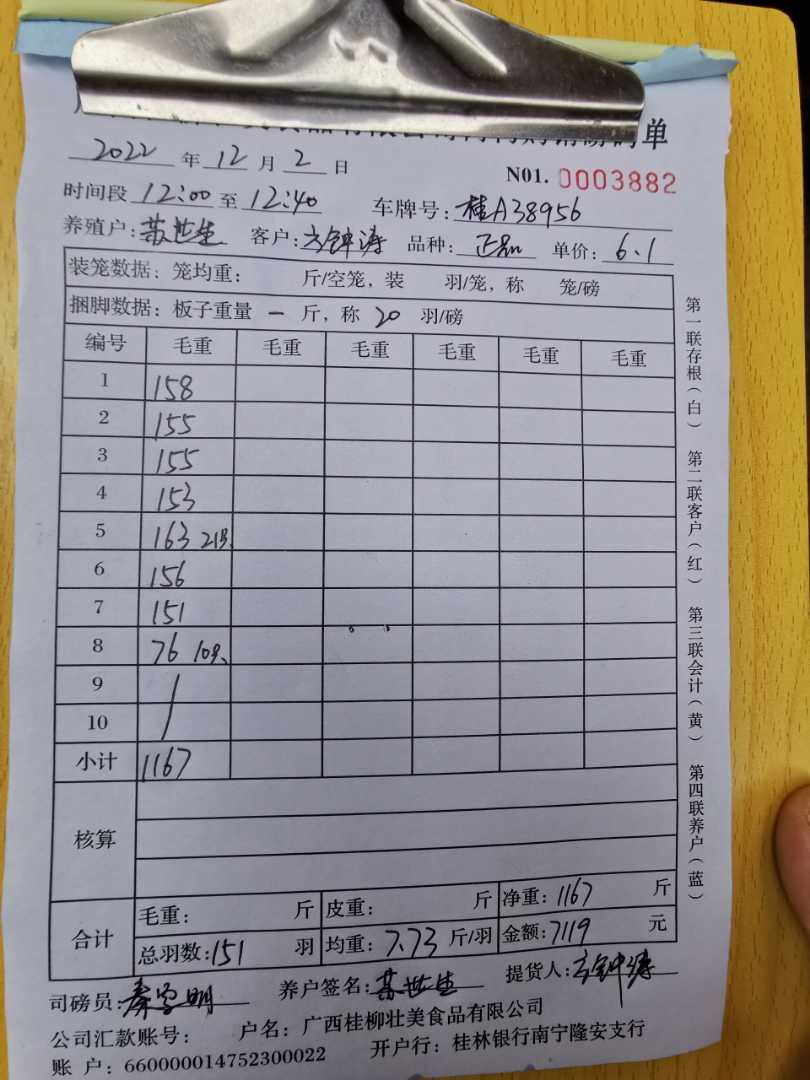 单
2022 年 12 月 2 日
N01. 0003882
时间段 12:00 至 12:40 车牌号: 桂A38956
养殖户: 苏世生 客户: 方钟涛 品种: 正品 单价: 6.1
装笼数据: 笼均重: 斤/空笼, 装 羽/笼, 称 笼/磅
捆脚数据: 板子重量 一 斤, 称 20 羽/磅
编号 毛重 毛重 毛重 毛重 毛重 毛重
1 158
2 155
3 155
4 153
5 163 21只
6 156
7 151
8 76 10只
9
10
小计 1167
核算
合计 毛重: 斤 皮重: 斤 净重: 1167 斤
总羽数: 151 羽 均重: 7.73 斤/羽 金额: 7119 元
司磅员: 秦 明 养户签名: 苏世生 提货人: 方钟涛
公司汇款账号: 户名: 广西桂柳壮美食品有限公司
账 户: 660000014752300022 开户行: 桂林银行南宁隆安支行
第一联存根(白) 第二联客户(红) 第三联会计(黄) 第四联养户(蓝)